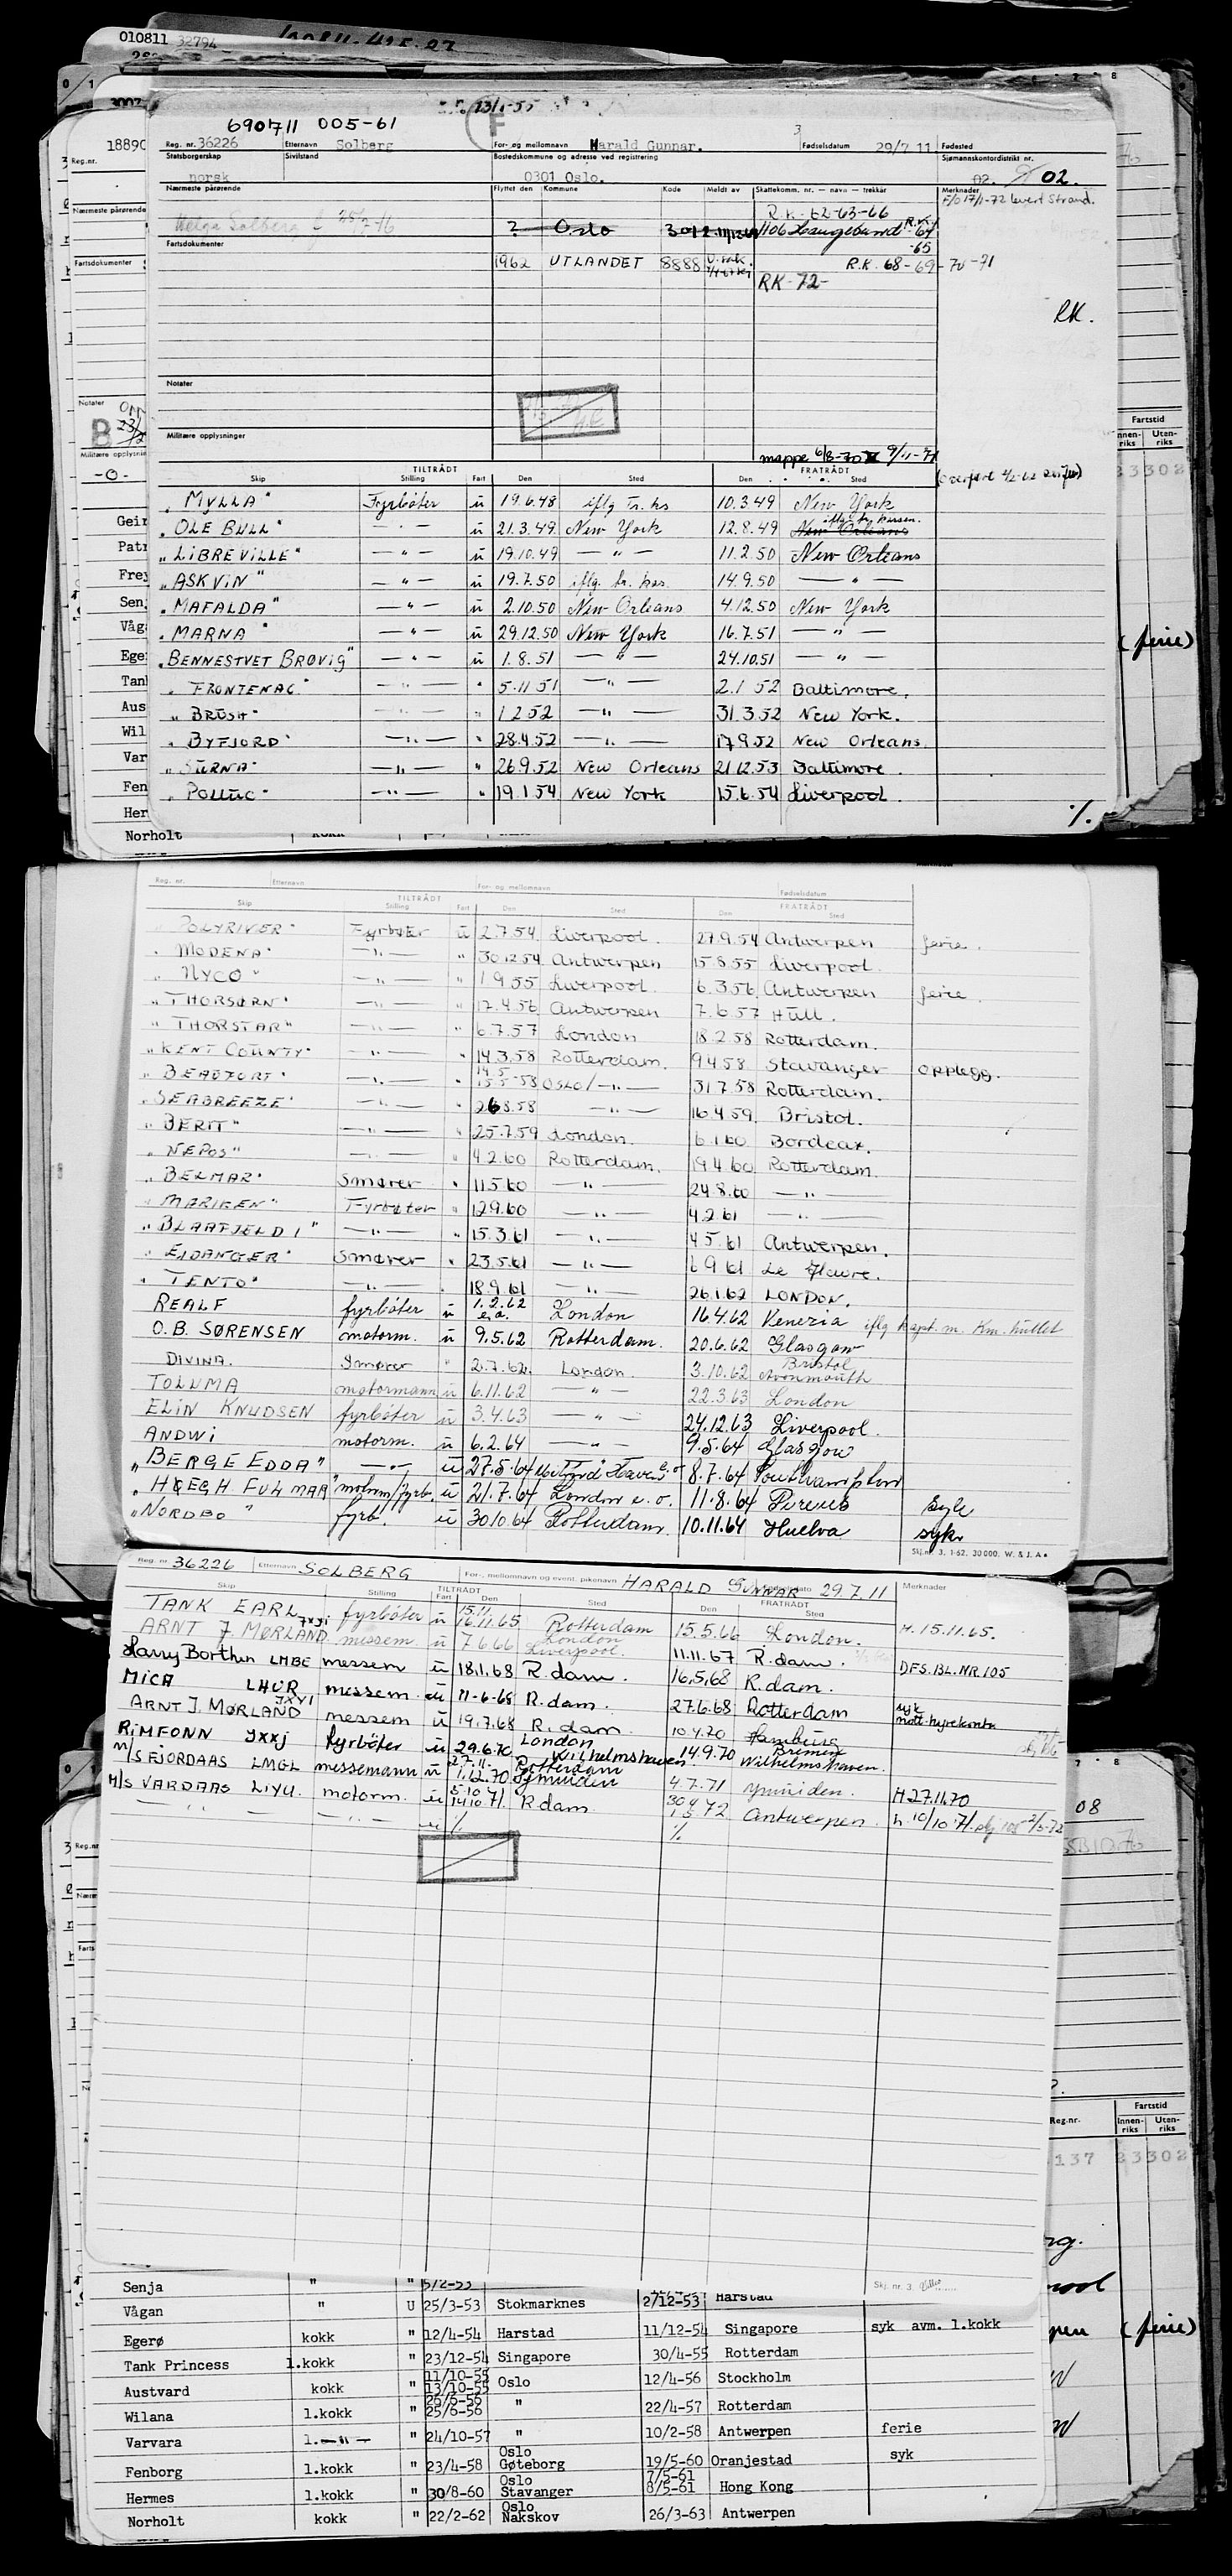 010811 32794
690711 005-61
Reg. nr. 36226 Etternavn Solberg For- og mellomnavn Harald Gunnar. Fødselsdatum 29/7 11 Fødested
Statsborgerskap Sivilstand Bostedskommune og adresse ved registrering Sjømannskontordistrikt nr.
norsk 0301 Oslo. 02. 02.
Nærmeste pårørende Flyttet den Kommune Kode Meldt av Skattekomm. nr. — navn — trekkår Merknader
F/o 17/1-72 levert Strand.
R.K. 62-63-66
Helga Solberg ? Oslo 1106 Haugesund R.K. 64
-65
Fartsdokumenter
1962 UTLANDET 8888 R.K. 68-69-70-71
RK-72-
RK.
Notater
Militære opplysninger
mappe 6/8-70 9/11-71
TILTRÅDT FRATRÅDT
Skip Stilling Fart Den Sted Den Sted
"MYLLA" Fyrbøter u 19.6.48 iflg tr. ks 10.3.49 New York
"OLE BULL" — " — u 21.3.49 New York 12.8.49 New Orleans iflg. tr. kassen.
"LIBREVILLE" — " — u 19.10.49 — " — 11.2.50 New Orleans
"ASKVIN" — " — u 19.7.50 iflg. tr. kas. 14.9.50 — " —
"MAFALDA" — " — u 2.10.50 New Orleans 4.12.50 New York
"MARNA" — " — u 29.12.50 New York 16.7.51 — " —
"BENNESTVET BRØVIG" — " — u 1.8.51 — " — 24.10.51 — " —
"FRONTENAC" — " — " 5.11 51 — " — 2.1 52 Baltimore.
"BRUSH" — " — " 1 2 52 — " — 31.3.52 New York.
"BYFJORD" — " — " 28.4.52 — " — 17.9.52 New Orleans.
"SURNA" — " — " 26.9.52 New Orleans 21.12.53 Baltimore.
"POLLUC" — " — " 19.1.54 New York 15.6.54 Liverpool.
Norholt
Reg. nr. Etternavn For- og mellomnavn Fødselsdatum Merknader
TILTRÅDT FRATRÅDT
Skip Stilling Fart Den Sted Den Sted
"POLYRIVER" Fyrbøter u 2.7.54 Liverpool. 27.9.54 Antwerpen ferie.
"MODENA" — " — " 30.12.54 Antwerpen 15.8.55 Liverpool.
"NYCO" — " — " 1 9 55 Liverpool. 6.3.56 Antwerpen ferie.
"THORSØRN" — " — " 17.4.56 Antwerpen 7.6.57 Hull.
"THORSTAR" — " — " 6.7.57 London 18.2.58 Rotterdam.
"KENT COUNTY" — " — " 14.3.58 Rotterdam. 9.4.58 Stavanger opplegg.
"BEAUFORT" — " — " 14.5 15.5-58 Oslo/— " — 31.7.58 Rotterdam.
"SEABREEZE" — " — " 26.8.58 — " — 16.4.59 Bristol.
"BERIT" — " — " 25.7.59 London. 6.1.60 Bordeax.
"NEPOS" — " — " 4.2.60 Rotterdam. 19.4.60 Rotterdam.
"BELMAR" Smører " 11.5.60 — " — 24.8.60 — " —
"MARIKEN" Fyrbøter " 12.9.60 — " — 4.2.61 — " —
"BLAAFJELD I" — " — " 15.3.61 — " — 4.5.61 Antwerpen.
"EIDANGER" Smører " 23.5.61 — " — 6 9 61 Le Havre.
"TENTO" — " — " 18.9.61 — " — 26.1.62 LONDON.
REALF fyrbøter u 1.2.62 e.a. London 16.4.62 Venezia iflg kapt. m. Km. hullet
O.B. SØRENSEN motorm. u 9.5.62 Rotterdam. 20.6.62 Glasgow
DIVINA. Smører " 2.7.62. London. 3.10.62 Bristol Avonmouth
TOLUMA motormann u 6.11.62 — " — 22.3.63 London
ELIN KNUDSEN fyrbøter u 3.4.63 — " — 24.12.63 Liverpool.
ANDWI motorm. u 6.2.64 — " — 9.5.64 Glasgow
"BERGE EDDA" — " — u 27.5.64 Milford Haven e.o. 8.7.64 Southampton
"HØEGH FULMAR" motorm/fyrb. u 21.7.64 London e.o. 11.8.64 Pireus syk
"NORDBO" fyrb. u 30.10.64 Rotterdam 10.11.64 Huelva syk
Skj. nr. 3. 1-62. 30 000. W. & J. A.
Reg. nr. 36226 Etternavn SOLBERG For-, mellomnavn og event. pikenavn HARALD GUNNAR 29.7.11 Merknader
TILTRÅDT FRATRÅDT
Skip Stilling Fart Den Sted Den Sted
TANK EARL fyrbøter u 15.11. 16.11.65 Rotterdam 15.5.66 London. H. 15.11.65.
ARNT J. MØRLAND JXYI messem. u 7.6.66 London Liverpool. 11.11.67 R.dam.
Harry Borthen LMBE messem u 18.1.68 R.dam. 16.5.68 R.dam. DFS.BL.NR 105
MICA LHUR messem. u 11-6-68 R.dam. 27.6.68 Rotterdam syk mott. hyrekonto
ARNT J. MØRLAND JXYI messem u 19.7.68 R.dam. 10.4.70 Hamburg
RIMFONN JXXJ fyrbøter u 29.6.70 London Wilhelmshaven 14.9.70 Bremen Wilhelmshaven.
M/S FJORDAAS LMGL messemann u 27.11- 1.12.70 Rotterdam Ijmuiden 4.7.71 Ymuiden. H 27.11.70
M/S VARDAAS LIYU. motorm. u 5.10 14.10 71. R.dam 30 4 1 5 72 Antwerpen. h. 10/10 71.
— " — — " — u % %
Skj. nr. 3
Senja " " 5/2-53 2/12-53 Harstad
Vågan " U 25/3-53 Stokmarknes
Egerø kokk " 12/4-54 Harstad 11/12-54 Singapore syk avm. 1.kokk
Tank Princess 1.kokk " 23/12-54 Singapore 30/4-55 Rotterdam
Austvard kokk " 11/10-55 13/10-55 Oslo 12/4-56 Stockholm
Wilana 1.kokk " 25/6-56 25/6-56 " 22/4-57 Rotterdam
Varvara 1.—"— " 24/10-57 " 10/2-58 Antwerpen ferie
Fenborg 1.kokk " 23/4-58 Oslo Gøteborg 19/5-60 Oranjestad syk
Hermes 1.kokk " 30/8-60 Oslo Stavanger 7/5-61 8/5-61 Hong Kong
Norholt kokk " 22/2-62 Oslo Nakskov 26/3-63 Antwerpen
Fartstid
Innen-riks Uten-riks
23302
(ferie)